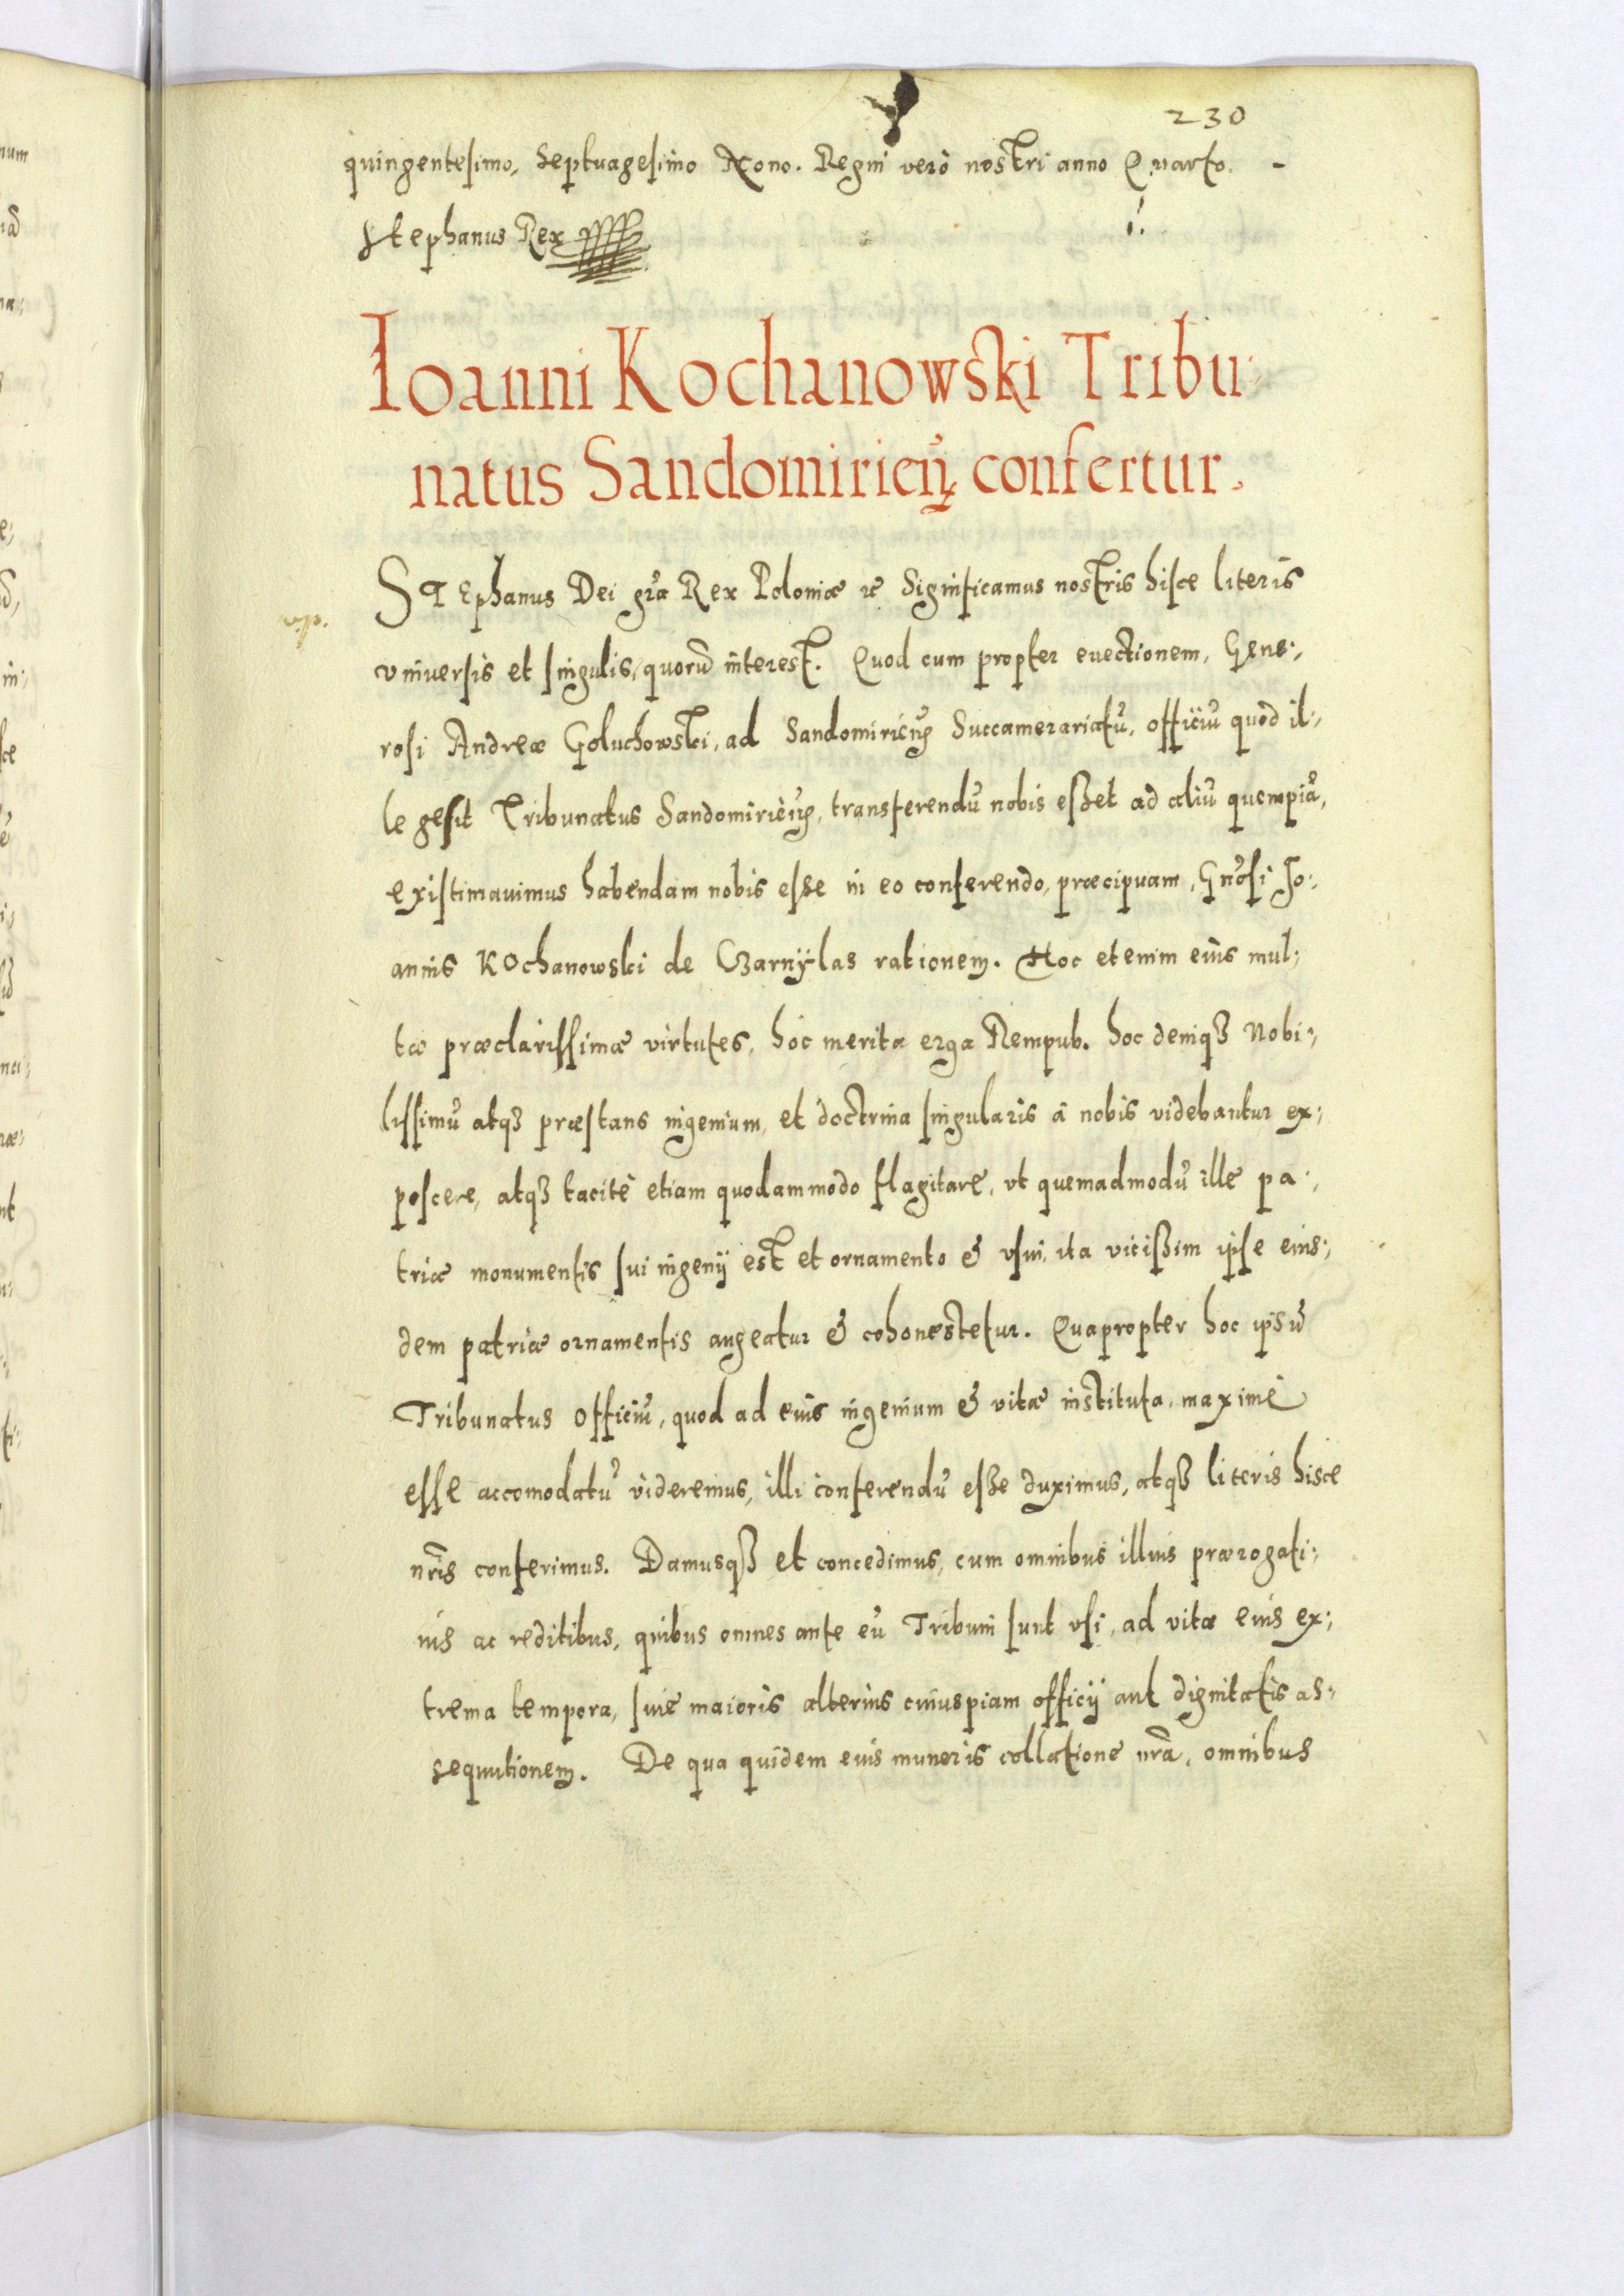 230
quingentesimo, Septuagesimo Nono. Regni verò nostri anno Quarto. -
Stephanus Rex
Ioanni Kochanowski Tribu:
natus Sandomirień confertur.
STEphanus Dei gr̃a Rex Poloniæ &c Significamus nostris hisce literis
vniuersis et singulis, quorũ interest. Quod cum propter euectionem, Gene:,
rosi Andreæ Goluchowski, ad Sandomirień Succamerariatũ, officiũ quod il:,
le gesit Tribunatus Sandomirień, transferendũ nobis eßet ad aliũ quempiã,
existimauimus habendam nobis esse in eo conferendo, præcipuam, Gnõsi Jo:,
annis Kochanowski de Czarnÿlas rationem. Hoc etenim eius mul:,
tæ præclarissimæ virtutes, hoc merita erga Rempub. hoc deniqꝫ Nobi:,
lissimũ atqꝫ præstans ingenium, et doctrina singularis à nobis videbantur ex:,
poscere, atqꝫ tacitè etiam quodammodo flagitare, vt quemadmodũ ille pa:,
triæ monumentis sui ingenij est et ornamento & vsui, ita vicißim ipse eius:,
dem patriæ ornamentis augeatur & cohonestetur. Quapropter hoc ipsũ
Tribunatus officiũ, quod ad eius ingenium & vitæ instituta, maximè
esse accomodatũ videremus, illi conferendũ esse duximus, atqꝫ literis hisce
nr̃is conferimus. Damusqꝫ et concedimus, cum omnibus illius prærogati:,
uis ac reditibus, quibus omnes ante eũ Tribuni sunt vsi, ad vitæ eius ex:,
trema tempora, siue maioris alterius cuiuspiam officij aut dignitatis as:,
sequutionem. De qua quidem eius muneris collatione nr̃a, omnibus